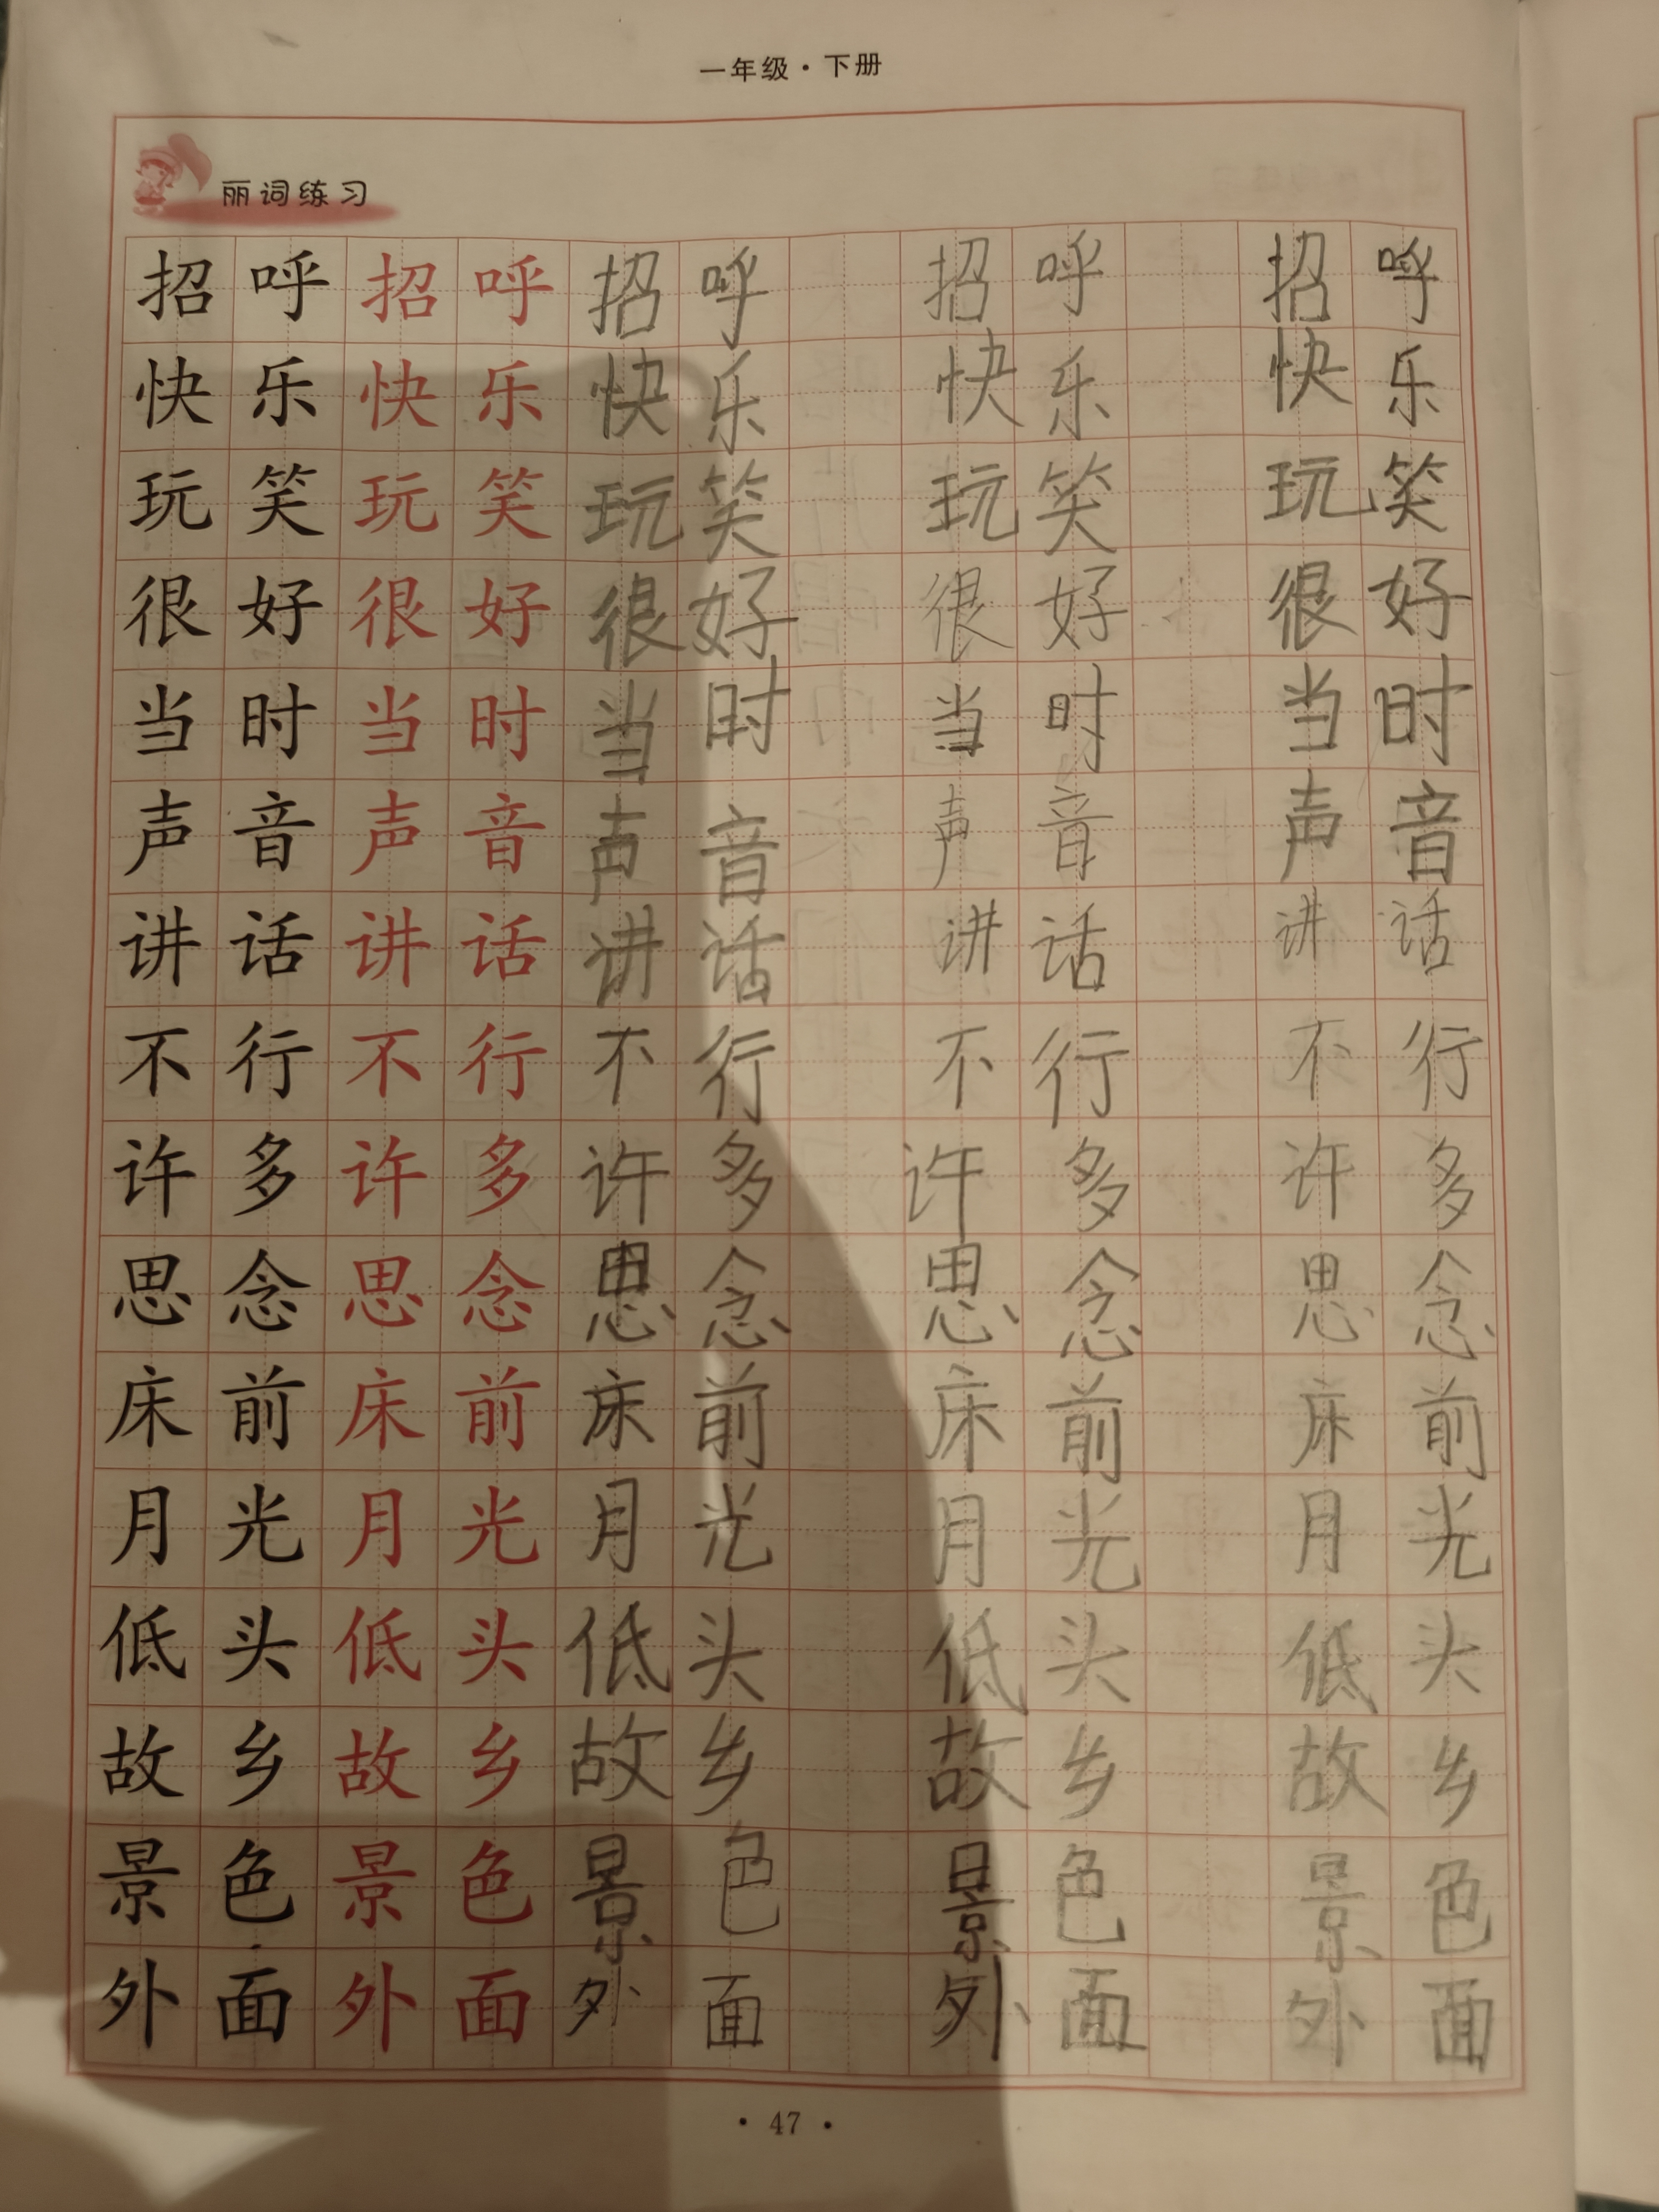 一年级·下册
丽词练习
招呼招呼招呼 招呼 招呼
快乐快乐快乐 快乐 快乐
玩笑玩笑玩笑 玩笑 玩笑
很好很好很好 很好 很好
当时当时当时 当时 当时
声音声音声音 声音 声音
讲话讲话讲话 讲话 讲话
不行不行不行 不行 不行
许多许多许多 许多 许多
思念思念思念 思念 思念
床前床前床前 床前 床前
月光月光月光 月光 月光
低头低头低头 低头 低头
故乡故乡故乡 故乡 故乡
景色景色景色 景色 景色
外面外面外面 外面 外面
·47·